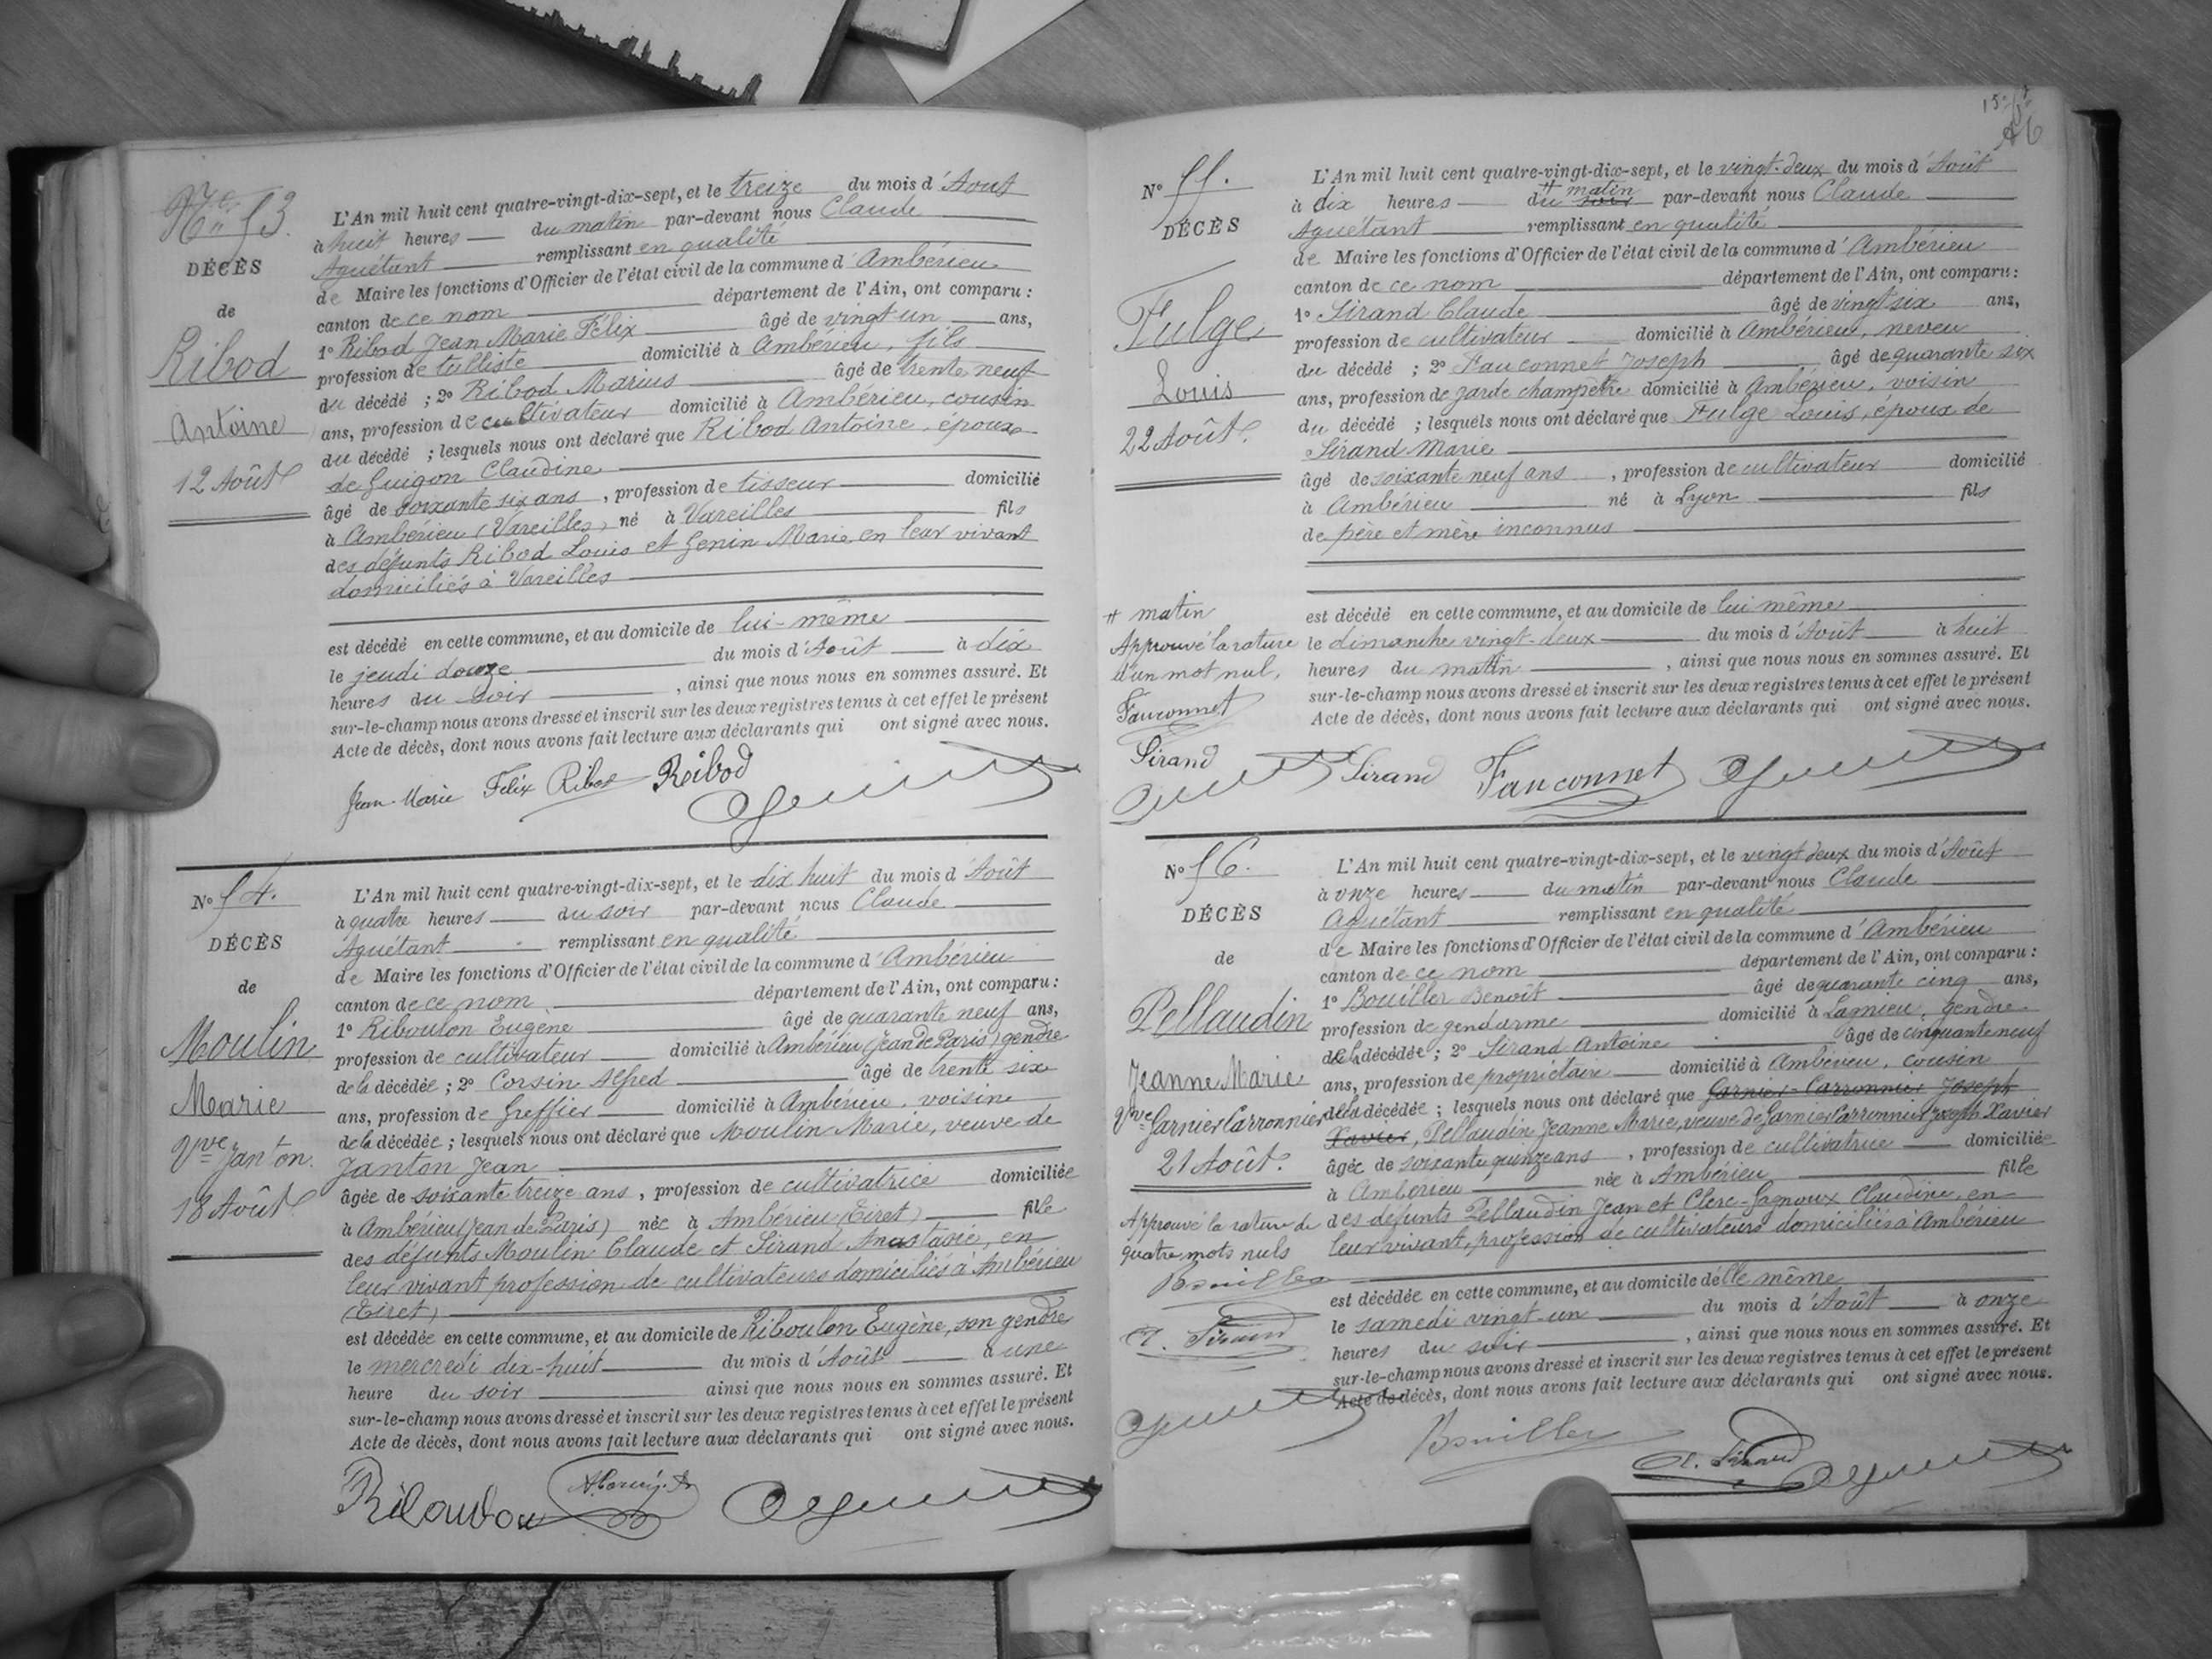 N° 53.
DÉCÈS
de
Ribod
Antoine
12 Août
L'An mil huit cent quatre-vingt-dix-sept, et le treize du mois d'Aout
à huit heures du matin par-devant nous Claude
Aguétant remplissant en qualité
de Maire les fonctions d'Officier de l'état civil de la commune d'Ambérieu
canton de ce nom département de l'Ain, ont comparu :
1° Ribod Jean Marie Félix âgé de vingt un ans,
profession de tulliste domicilié à Ambérieu, fils
du décédé ; 2° Ribod Marius âgé de trente neuf
ans, profession de cultivateur domicilié à Ambérieu, cousin
du décédé ; lesquels nous ont déclaré que Ribod Antoine, époux
de Guigon Claudine
âgé de soixante six ans, profession de tisseur domicilié
à Ambérieu (Vareilles) né à Vareilles fils
des défunts Ribod Louis et Genin Marie en leur vivant
domiciliés à Vareilles
est décédé en cette commune, et au domicile de lui-même
le jeudi douze du mois d'Août à dix
heures du soir, ainsi que nous nous en sommes assuré. Et
sur-le-champ nous avons dressé et inscrit sur les deux registres tenus à cet effet le présent
Acte de décès, dont nous avons fait lecture aux déclarants qui ont signé avec nous.
Jean-Marie Félix Ribod Ribod
N° 54.
DÉCÈS
de
Moulin
Marie
Vve Janton.
18 Août
L'An mil huit cent quatre-vingt-dix-sept, et le dix huit du mois d'Août
à quatre heures du soir par-devant nous Claude
Aguétant remplissant en qualité
de Maire les fonctions d'Officier de l'état civil de la commune d'Ambérieu
canton de ce nom département de l'Ain, ont comparu :
1° Riboulon Eugène âgé de quarante neuf ans,
profession de cultivateur domicilié à Ambérieu (Jean de Paris) gendre
de la décédée ; 2° Corsin Alfred âgé de trente six
ans, profession de Greffier domicilié à Ambérieu, voisin
de la décédée ; lesquels nous ont déclaré que Moulin Marie, veuve de
Janton Jean
âgée de soixante treize ans, profession de cultivatrice domiciliée
à Ambérieu (Jean de Paris) née à Ambérieu (Tiret) fille
des défunts Moulin Claude et Sirand Anastasie, en
leur vivant profession de cultivateurs domiciliés à Ambérieu
(Tiret)
est décédée en cette commune, et au domicile de Riboulon Eugène, son gendre
le mercredi dix-huit du mois d'Août à une
heure du soir ainsi que nous nous en sommes assuré. Et
sur-le-champ nous avons dressé et inscrit sur les deux registres tenus à cet effet le présent
Acte de décès, dont nous avons fait lecture aux déclarants qui ont signé avec nous.
Riboulon
N° 55.
DÉCÈS
Fulge
Louis
22 Août.
L'An mil huit cent quatre-vingt-dix-sept, et le vingt-deux du mois d'Août
à dix heures du soir # matin par-devant nous Claude
Aguétant remplissant en qualité
de Maire les fonctions d'Officier de l'état civil de la commune d'Ambérieu
canton de ce nom département de l'Ain, ont comparu :
1° Sirand Claude âgé de vingt six ans,
profession de cultivateur domicilié à Ambérieu, neveu
du décédé ; 2° Fauconnet Joseph âgé de quarante six
ans, profession de garde champêtre domicilié à Ambérieu, voisin
du décédé ; lesquels nous ont déclaré que Fulge Louis, époux de
Sirand Marie
âgé de soixante neuf ans, profession de cultivateur domicilié
à Ambérieu né à Lyon fils
de père et mère inconnus
est décédé en cette commune, et au domicile de lui même
le dimanche vingt-deux du mois d'Août à huit
heures du matin, ainsi que nous nous en sommes assuré. Et
sur-le-champ nous avons dressé et inscrit sur les deux registres tenus à cet effet le présent
Acte de décès, dont nous avons fait lecture aux déclarants qui ont signé avec nous.
# matin
Approuvé la rature
d'un mot nul,
Fauconnet
Sirand
Sirand Fauconnet
N° 56.
DÉCÈS
de
Pellaudin
Jeanne Marie
Vve Garnier Carronnier
21 Août.
L'An mil huit cent quatre-vingt-dix-sept, et le vingt deux du mois d'Août
à onze heures du matin par-devant nous Claude
Aguétant remplissant en qualité
de Maire les fonctions d'Officier de l'état civil de la commune d'Ambérieu
canton de ce nom département de l'Ain, ont comparu :
1° Bouiller Benoît âgé de quarante cinq ans,
profession de gendarme domicilié à Lamieu, gendre
de la décédée ; 2° Sirand Antoine âgé de cinquante neuf
ans, profession de propriétaire domicilié à Ambérieu, cousin
de la décédée ; lesquels nous ont déclaré que Garnier-Carronnier Joseph
Xavier, Pellaudin Jeanne Marie, veuve de Garnier Carronnier Joseph Xavier
âgée de soixante quinze ans, profession de cultivatrice domiciliée
à Ambérieu née à Ambérieu fille
des défunts Pellaudin Jean et Clerc-Gagnoux Claudine, en
leur vivant, profession de cultivateurs domiciliés à Ambérieu
est décédée en cette commune, et au domicile d'elle même
le samedi vingt-un du mois d'Août à onze
heures du soir, ainsi que nous nous en sommes assuré. Et
sur-le-champ nous avons dressé et inscrit sur les deux registres tenus à cet effet le présent
Acte de décès, dont nous avons fait lecture aux déclarants qui ont signé avec nous.
Approuvé la rature de
quatre mots nuls
Bouiller
A. Sirand
Bouiller A. Sirand